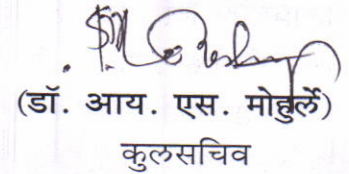 (डॉ. आय. एस. मोहुर्ले)
कुलसचिव